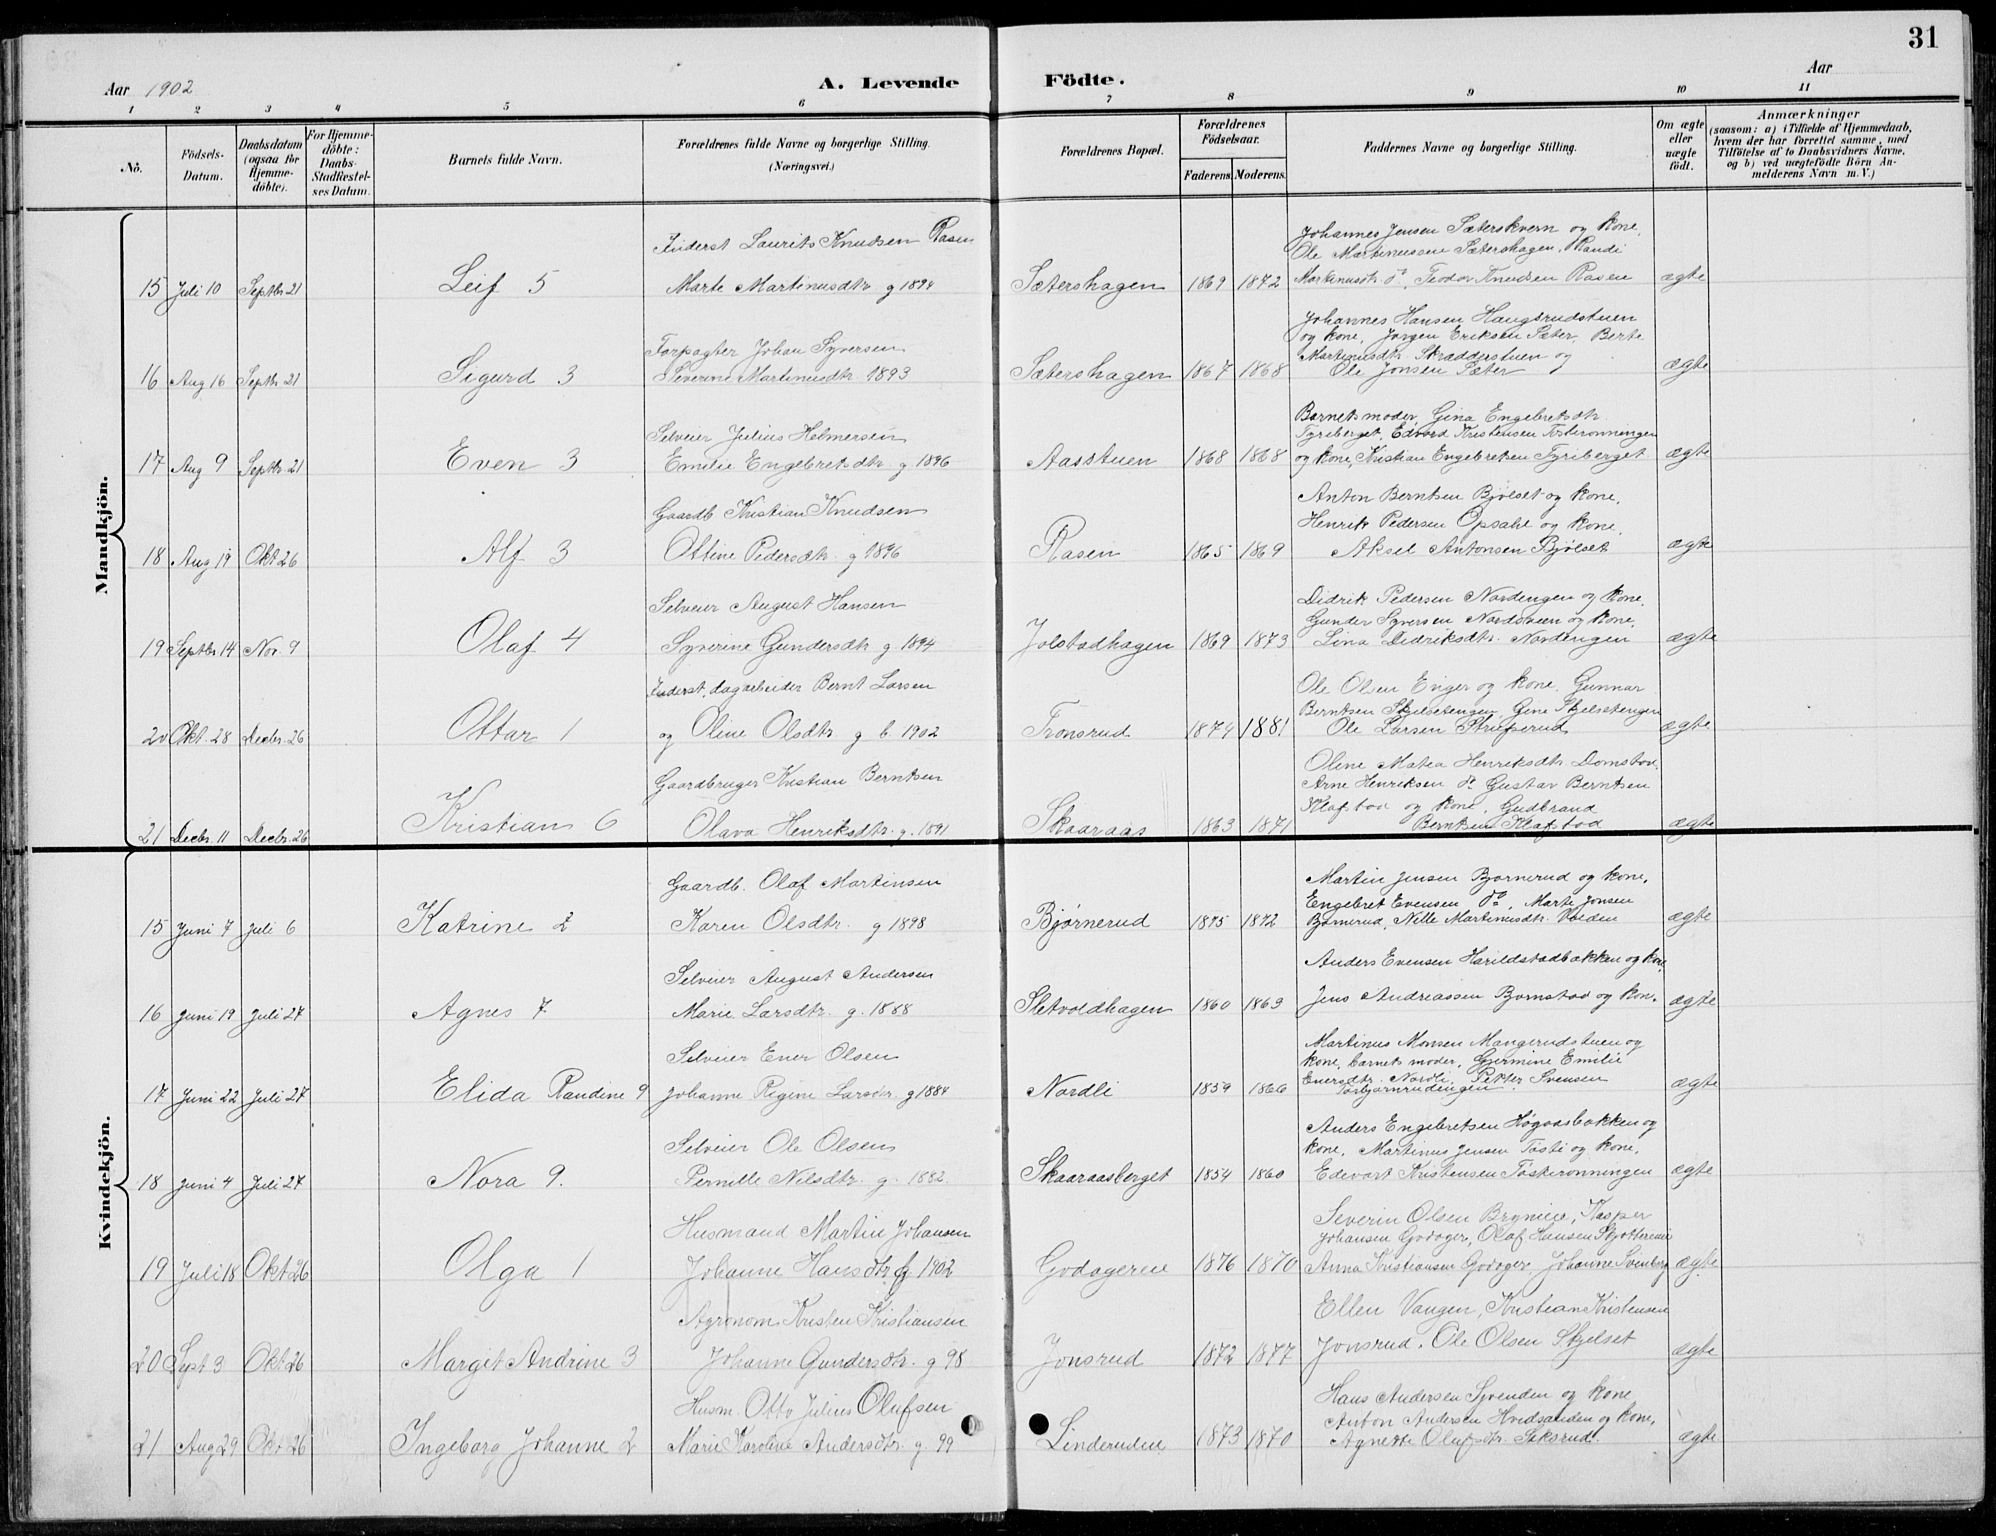 31
Aar 1902
A. Levende Födte.
Aar
1 2 3 4 5 6 7 8 9 10 11
No.
Födsels-Datum.
Daabsdatum (ogsaa for Hjemme-döbte).
For Hjemme-döbte: Daabs-Stadfæstel-ses Datum.
Barnets fulde Navn.
Forældrenes fulde Navne og borgerlige Stilling. (Næringsvei.)
Forældrenes Bopæl.
Forældrenes Födselsaar.
Faderens. Moderens.
Faddernes Navne og borgerlige Stilling.
Om ægte eller uægte födt.
Anmærkninger
(saasom: a) i Tilfælde af Hjemmedaab,
hvem der har forrettet samme, med
Tilföielse af to Daabsvidners Navne,
og b) ved uægtefödte Börn An-
melderens Navn m. V.)
Mandkjön.
Inderst Laurits Knudsen Rasen
Johannes Jensen Sæterskvern og kone,
Ole Martinusen Sætershagen, Randi
15 Juli 10 Septbr 21 Leif 5 Marte Martinusdtr g 1894 Sætershagen 1869 1872 Martinusdtr do, Teodor Knudsen Rasen ægte
Johannes Hansen Haugsrudstuen
Forpagter Johan Syversen
og kone, Jørgen Eriksen Sæter, Berte
Martinusdtr Skrædderstuen og
16 Aug 16 Septbr 21 Sigurd 3 Severine Martinusdtr 1893 Sætershagen 1867 1868 Ole Jonsen Sæter ægte
Barnets moder, Gina Engebretsdtr
Selveier Julius Helmersen
Tyriberget, Edvard Kristensen Tosterønningen
17 Aug 9 Septbr 21 Even 3 Emilie Engebretsdtr g 1896 Aasstuen 1868 1868 og kone, Kristian Engebretsen Tyriberget ægte
Anton Berntsen Bjølset og kone,
Gaardb Kristian Knudsen
Henrik Pedersen Opsahl og kone,
18 Aug 19 Okt 26 Alf 3 Ottine Pedersdtr g 1896 Rasen 1865 1869 Aksel Antonsen Bjølset ægte
Didrik Pedersen Nordengen og kone,
Selveier August Hansen
Gunder Syversen Nordstuen og kone,
19 Septbr 14 Nov. 9 Olaf 4 Syverine Gundersdtr g 1894 Jolstadhagen 1869 1873 Lina Didriksdtr. Nordengen ægte
Ole Olsen Enger og kone, Gunnar
Inderst, dagarbeider Bernt Larsen
Berntsen Skjelsetengen, Gine Skjelsetengen
20 Okt. 28 Decbr. 26 Ottar 1 og Oline Olsdtr g 6 1902 Tronsrud 1879 1881 Ole Larsen ægte
Oline Matea Henriksdtr
Gaardbruger Kristian Berntsen
Arne Henriksen do Gustav Berntsen
Klafstad og kone, Gudbrand
21 Decbr. 11 Decbr. 26 Kristian 6 Olava Henriksdtr. g. 1891 Skaaraas 1863 1871 Berntsen Klafstad ægte
Kvindekjön.
Martin Jensen Bjørnerud og kone,
Gaardb. Olaf Martinsen
Engebret Evensen do, Marte Jonsen
15 Juni 7 Juli 6 Katrine 2 Karen Olsdtr. g 1898 Bjørnerud 1875 1872 Bjørnerud, Nelle Martinusdtr. Volden ægte
Anders Evensen Harildstadbakken og kone,
Selveier August Andersen
16 Juni 19 Juli 27 Agnes 7 Marie Larsdtr. g. 1888 Sletvoldhagen 1860 1863 Jens Andreassen Bjørnstad og kone. ægte
Martinus Monsen Mangerudstuen og
Selveier Ener Olsen
kone, barnets moder, Gjermine Emilie
Enersdtr. Nordli, Petter Svensen
17 Juni 22 Juli 27 Elida Randine 9 Johanne Regine Larsdtr. g 1884 Nordli 1859 1866 Torbjørnrudengen ægte
Anders Engebretsen Høgaasbakken og
Selveier Ole Olsen
kone, Martinus Jensen Tøsti og kone,
18 Juni 4 Juli 27 Nora 9. Pernille Nilsdtr. g. 1882 Skaaraasberget 1854 1860 Edevart Kristensen Tøsterønningen ægte
Severin Olsen Brynieie, Kasper
Husmand Martin Johansen
Johansen Godager, Olaf Hansen Skjøttereie
19 Juli 18 Okt 26 Olga 1 Johanne Hansdtr g 1902 Godagereie 1876 1870 Anna Kristiansen Godager Johanne Svenberg ægte
Ellen Vangen, Kristian Kristensen
Agronom Kristen Kristiansen
20 Sept 3 Okt 26 Margit Andrine 3 Johanne Gundersdtr. g 98 Jonsrud 1872 1877 Jonsrud. Ole Olsen Skjelset ægte
Hans Andersen Svenden og kone
Husm. Otto Julius Olufsen
Anton Andersen Hvidsanden og kone,
21 Aug 29 Okt 26 Ingeborg Johanne 2 Marie Karoline Andersdtr. g. 99 Linderudeie 1873 1870 Agnette Olufsdtr. Seksrud. ægte